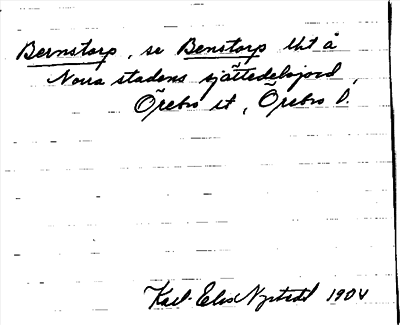 Bernstorp, se Benstorp lht å
Norra stadens sjättedelsjord,
Örebro st, Örebro l.
Karl-Elis Nystedt 1904